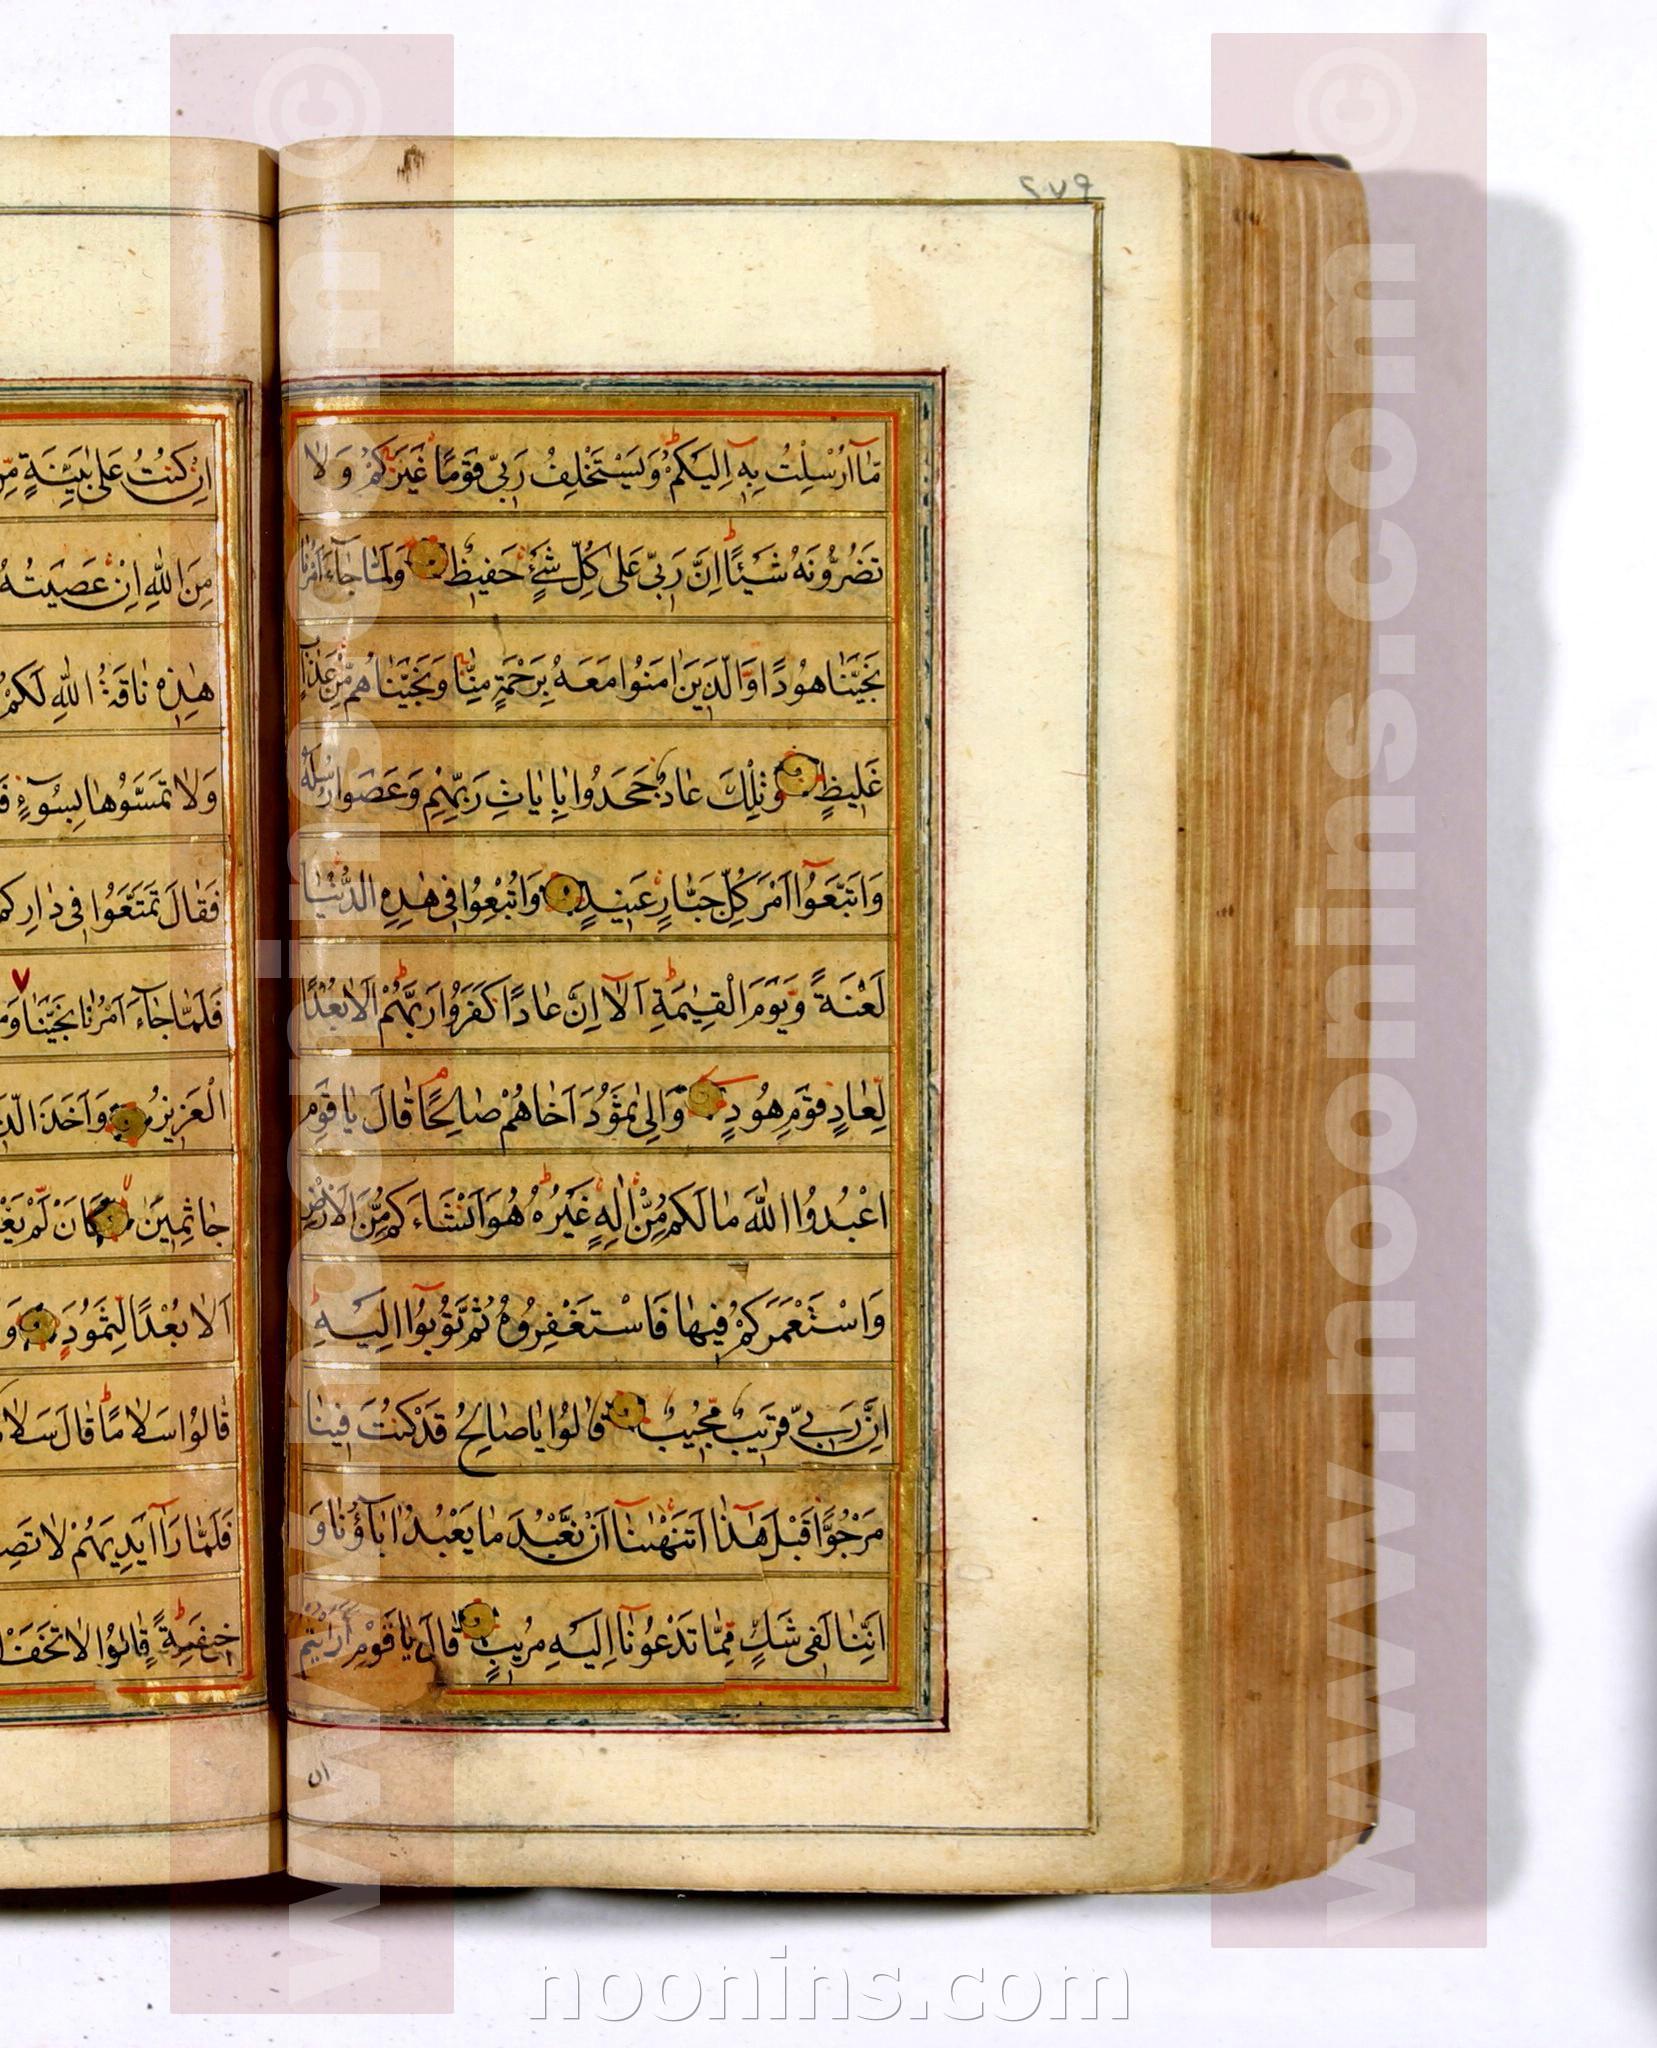 مَّا أُرْسِلْتُ بِهِ إِلَيْكُمْ وَيَسْتَخْلِفُ رَبِّي قَوْمًا غَيْرَكُمْ وَلَا
تَضُرُّونَهُ شَيْئًا إِنَّ رَبِّي عَلَىٰ كُلِّ شَيْءٍ حَفِيظٌ وَلَمَّا جَاءَ أَمْرُنَا
نَجَّيْنَا هُودًا وَالَّذِينَ اٰمَنُوا مَعَهُ بِرَحْمَةٍ مِنَّا وَنَجَّيْنَاهُم مِّنْ عَذَابٍ
غَلِيظٍ وَتِلْكَ عَادٌ جَحَدُوا بِاٰيَاتِ رَبِّهِمْ وَعَصَوْا رُسُلَهُ
وَاتَّبَعُوا أَمْرَ كُلِّ جَبَّارٍ عَنِيدٍ وَاُتْبِعُوا فِي هٰذِهِ الدُّنْيَا
لَعْنَةً وَيَوْمَ الْقِيٰمَةِ اَلَا اِنَّ عَادًا كَفَرُوا رَبَّهُمْ اَلَا بُعْدًا
لِّعَادٍ قَوْمِ هُودٍ وَاِلىٰ ثَمُودَ اَخَاهُمْ صَالِحًا قَالَ يَا قَوْمِ
اعْبُدُوا اللّٰهَ مَا لَكُم مِّنْ اِلٰهٍ غَيْرُهُ هُوَ اَنْشَاَكُم مِّنَ الْاَرْضِ
وَاسْتَعْمَرَكُمْ فِيهَا فَاسْتَغْفِرُوهُ ثُمَّ تُوبُوا اِلَيْهِ
اِنَّ رَبِّي قَرِيبٌ مُّجِيبٌ قَالُوا يَا صَالِحُ قَدْ كُنْتَ فِينَا
مَرْجُوًّا قَبْلَ هٰذَا اَتَنْهٰىنَا اَنْ نَّعْبُدَ مَا يَعْبُدُ اٰبَاؤُنَا وَ
اِنَّنَا لَفِي شَكٍّ مِّمَّا تَدْعُونَا اِلَيْهِ مُرِيبٍ قَالَ يَا قَوْمِ اَرَاَيْتُمْ
اِنْ كُنْتُ عَلىٰ بَيِّنَةٍ مِّن
مِنَ اللّٰهِ اِنْ عَصَيْتُهُ
هٰذِهِ نَاقَةُ اللّٰهِ لَكُمْ
وَلَا تَمَسُّوهَا بِسُوءٍ
فَقَالَ تَمَتَّعُوا فِي دَارِكُمْ
فَلَمَّا جَاءَ اَمْرُنَا نَجَّيْنَا
الْعَزِيزُ وَاَخَذَ
جَاثِمِينَ كَاَنْ لَّمْ
اَلَا بُعْدًا لِّثَمُودَ
قَالُوا سَلَامًا قَالَ سَلَامٌ
فَلَمَّا رَاٰ اَيْدِيَهُمْ لَا
خِيفَةً قَالُوا لَا تَخَفْ
ان
www.noonins.com ©
www.noonins.com ©
noonins.com